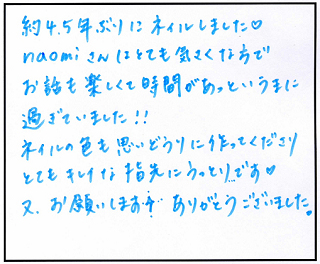 約4.5年ぶりにネイルしました♡
naomiさんはとても気さくな方で
お話も楽しくて時間があっというまに
過ぎていました!!
ネイルの色も思いどうりに作ってくださり
とてもキレイな指先にうっとり..です♡
又、お願いします. ありがとうございました。